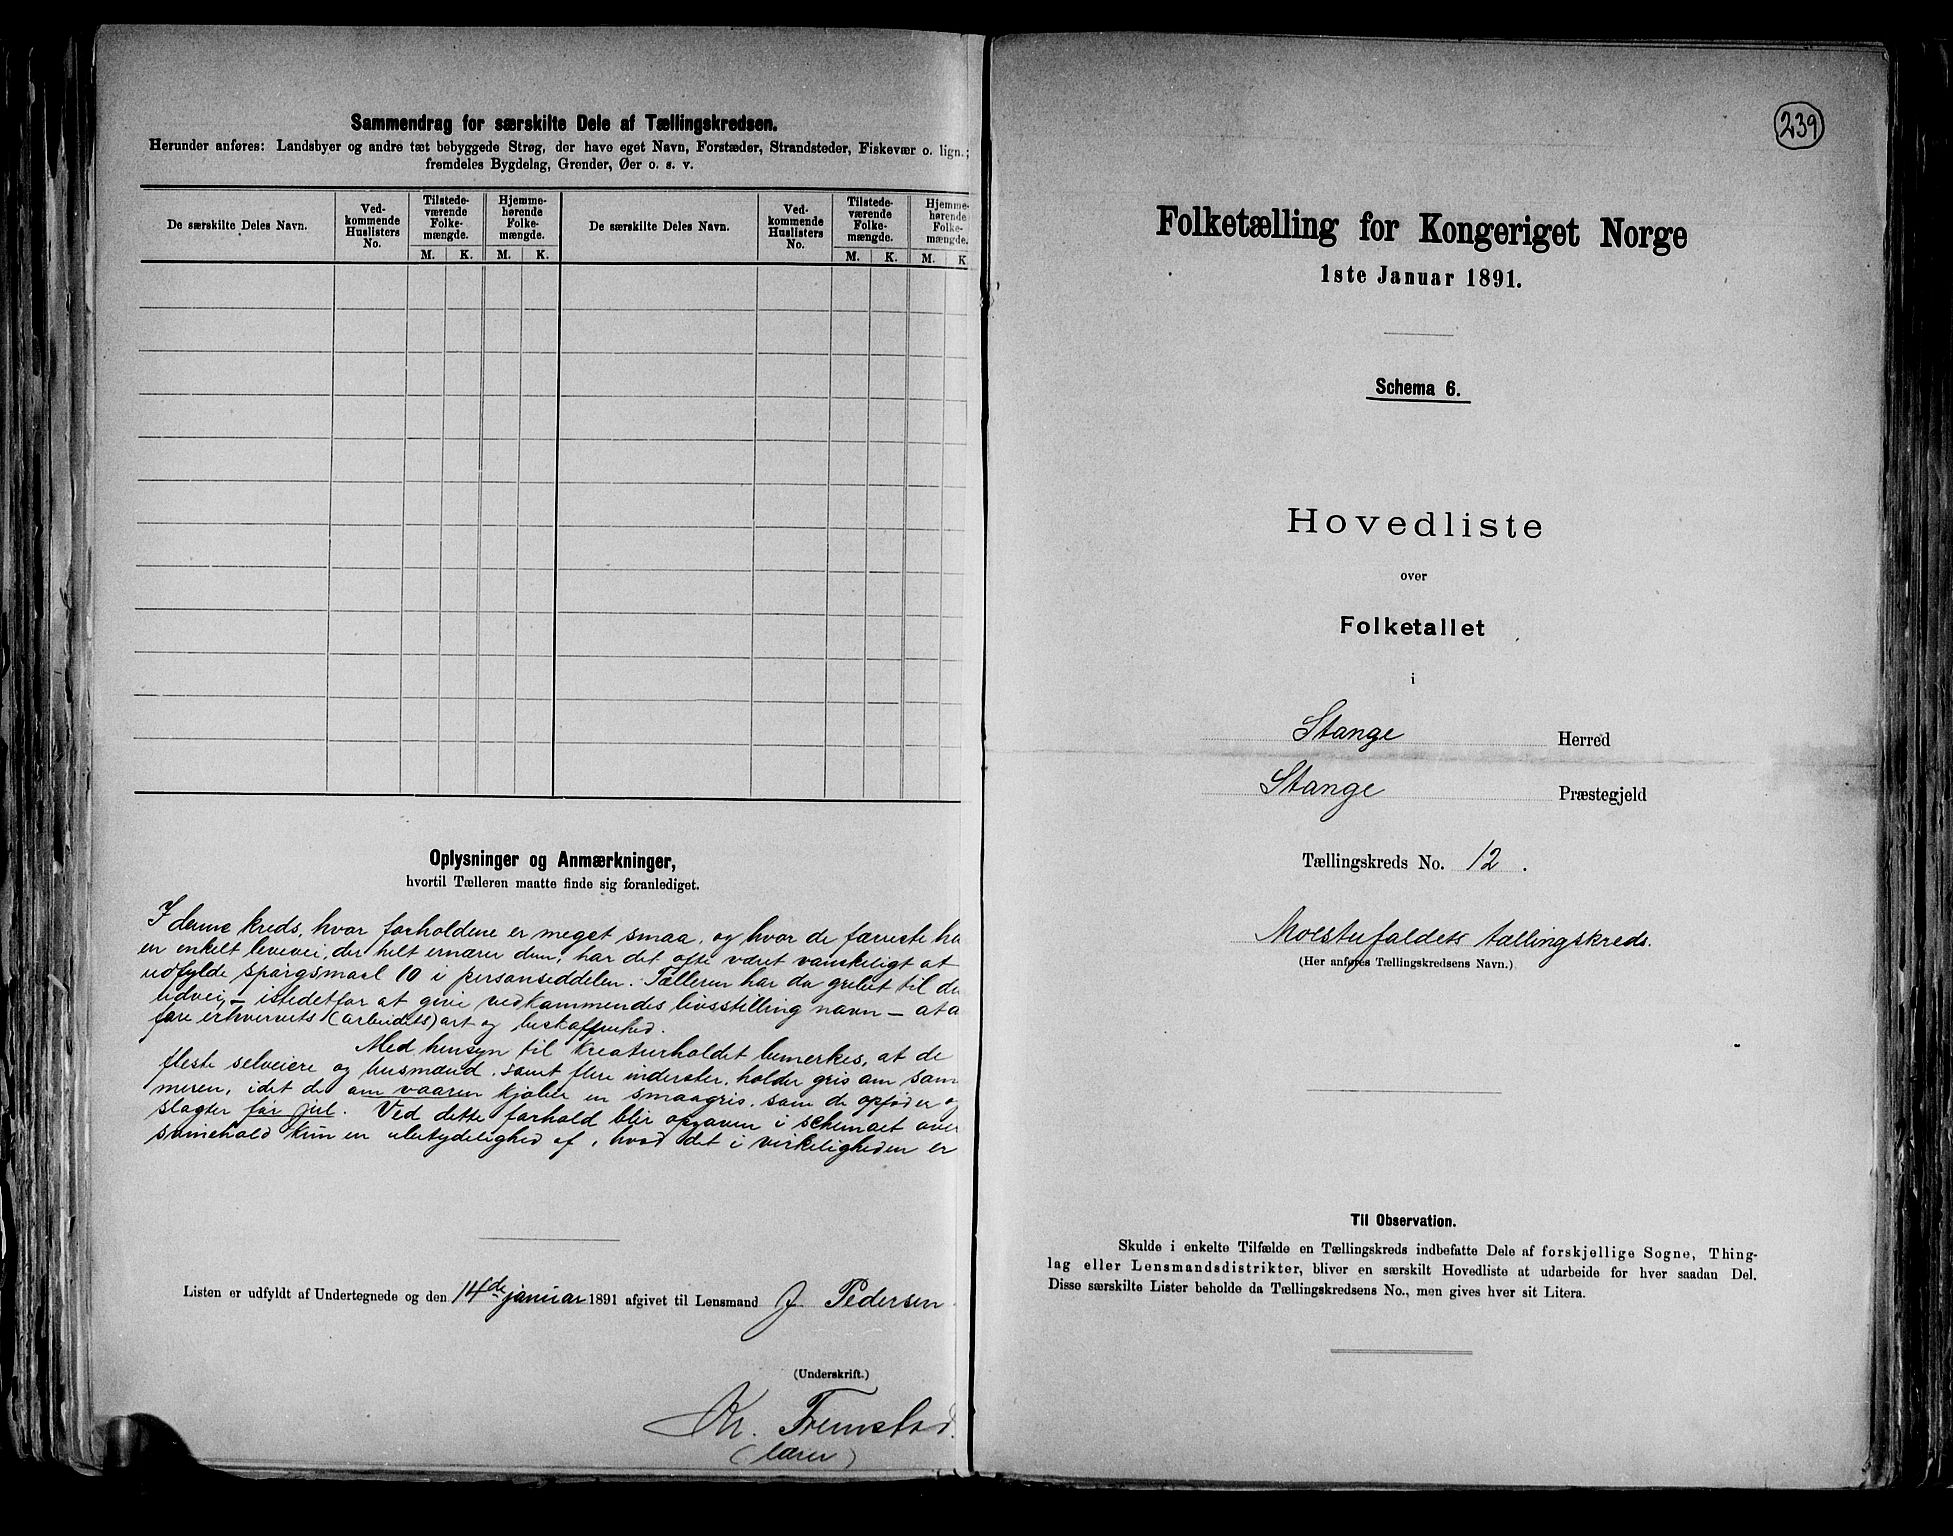 Sammendrag for særskilte Dele af Tællingskredsen.
Herunder anføres: Landsbyer og andre tæt bebyggede Strøg, der have eget Navn, Forstæder, Strandsteder, Fiskevær o. lign.;
fremdeles Bygdelag, Grender, Øer o. s. v.
De særskilte Deles Navn.
Ved-
kommende
Huslisters
No.
Tilstede-
værende
Folke-
mængde.
Hjemme-
hørende
Folke-
mængde.
M. K. M. K.
De særskilte Deles Navn.
Ved-
kommende
Huslisters
No.
Tilstede-
værende
Folke-
mængde.
Hjemme-
hørende
Folke-
mængde.
M. K. M. K
Oplysninger og Anmærkninger,
hvortil Tælleren maatte finde sig foranlediget.
I denne kreds, hvor forholdene er meget smaa, og hvor de færreste ha
en enkelt levevei, der helt ernærer dem, har det ofte været vanskeligt at
udfylde spørgsmaal 10 i personseddelen. Tælleren har da grebet til de
udvei – istedetfor at give vedkommendes livsstilling navn – at a
føre erhvervets (arbeidets) art og beskaffenhed.
Med hensyn til kreaturholdet bemerkes, at de
fleste selveiere og husmænd, samt flere inderster, holder gris om som
meren, idet de om vaaren kjøber en smaagris, som de opføder o
slagter før jul. Ved dette forhold blir opgaven i schemaet over
svinehold kun en ubetydelighed af, hvad det i virkeligheden er
Listen er udfyldt af Undertegnede og den 14de januar 1891 afgivet til Lensmand J. Pedersen
(Underskrift.)
Kr. Fremstad.
(lærer)
239
Folketælling for Kongeriget Norge
1ste Januar 1891.
Schema 6.
Hovedliste
over
Folketallet
i
Stange Herred
Stange Præstegjeld
Tællingskreds No. 12.
Moestufaldets tællingskreds.
(Her anføres Tællingskredsens Navn.)
Til Observation.
Skulde i enkelte Tilfælde en Tællingskreds indbefatte Dele af forskjellige Sogne, Thing-
lag eller Lensmandsdistrikter, bliver en særskilt Hovedliste at udarbeide for hver saadan Del.
Disse særskilte Lister beholde da Tællingskredsens No., men gives hver sit Litera.